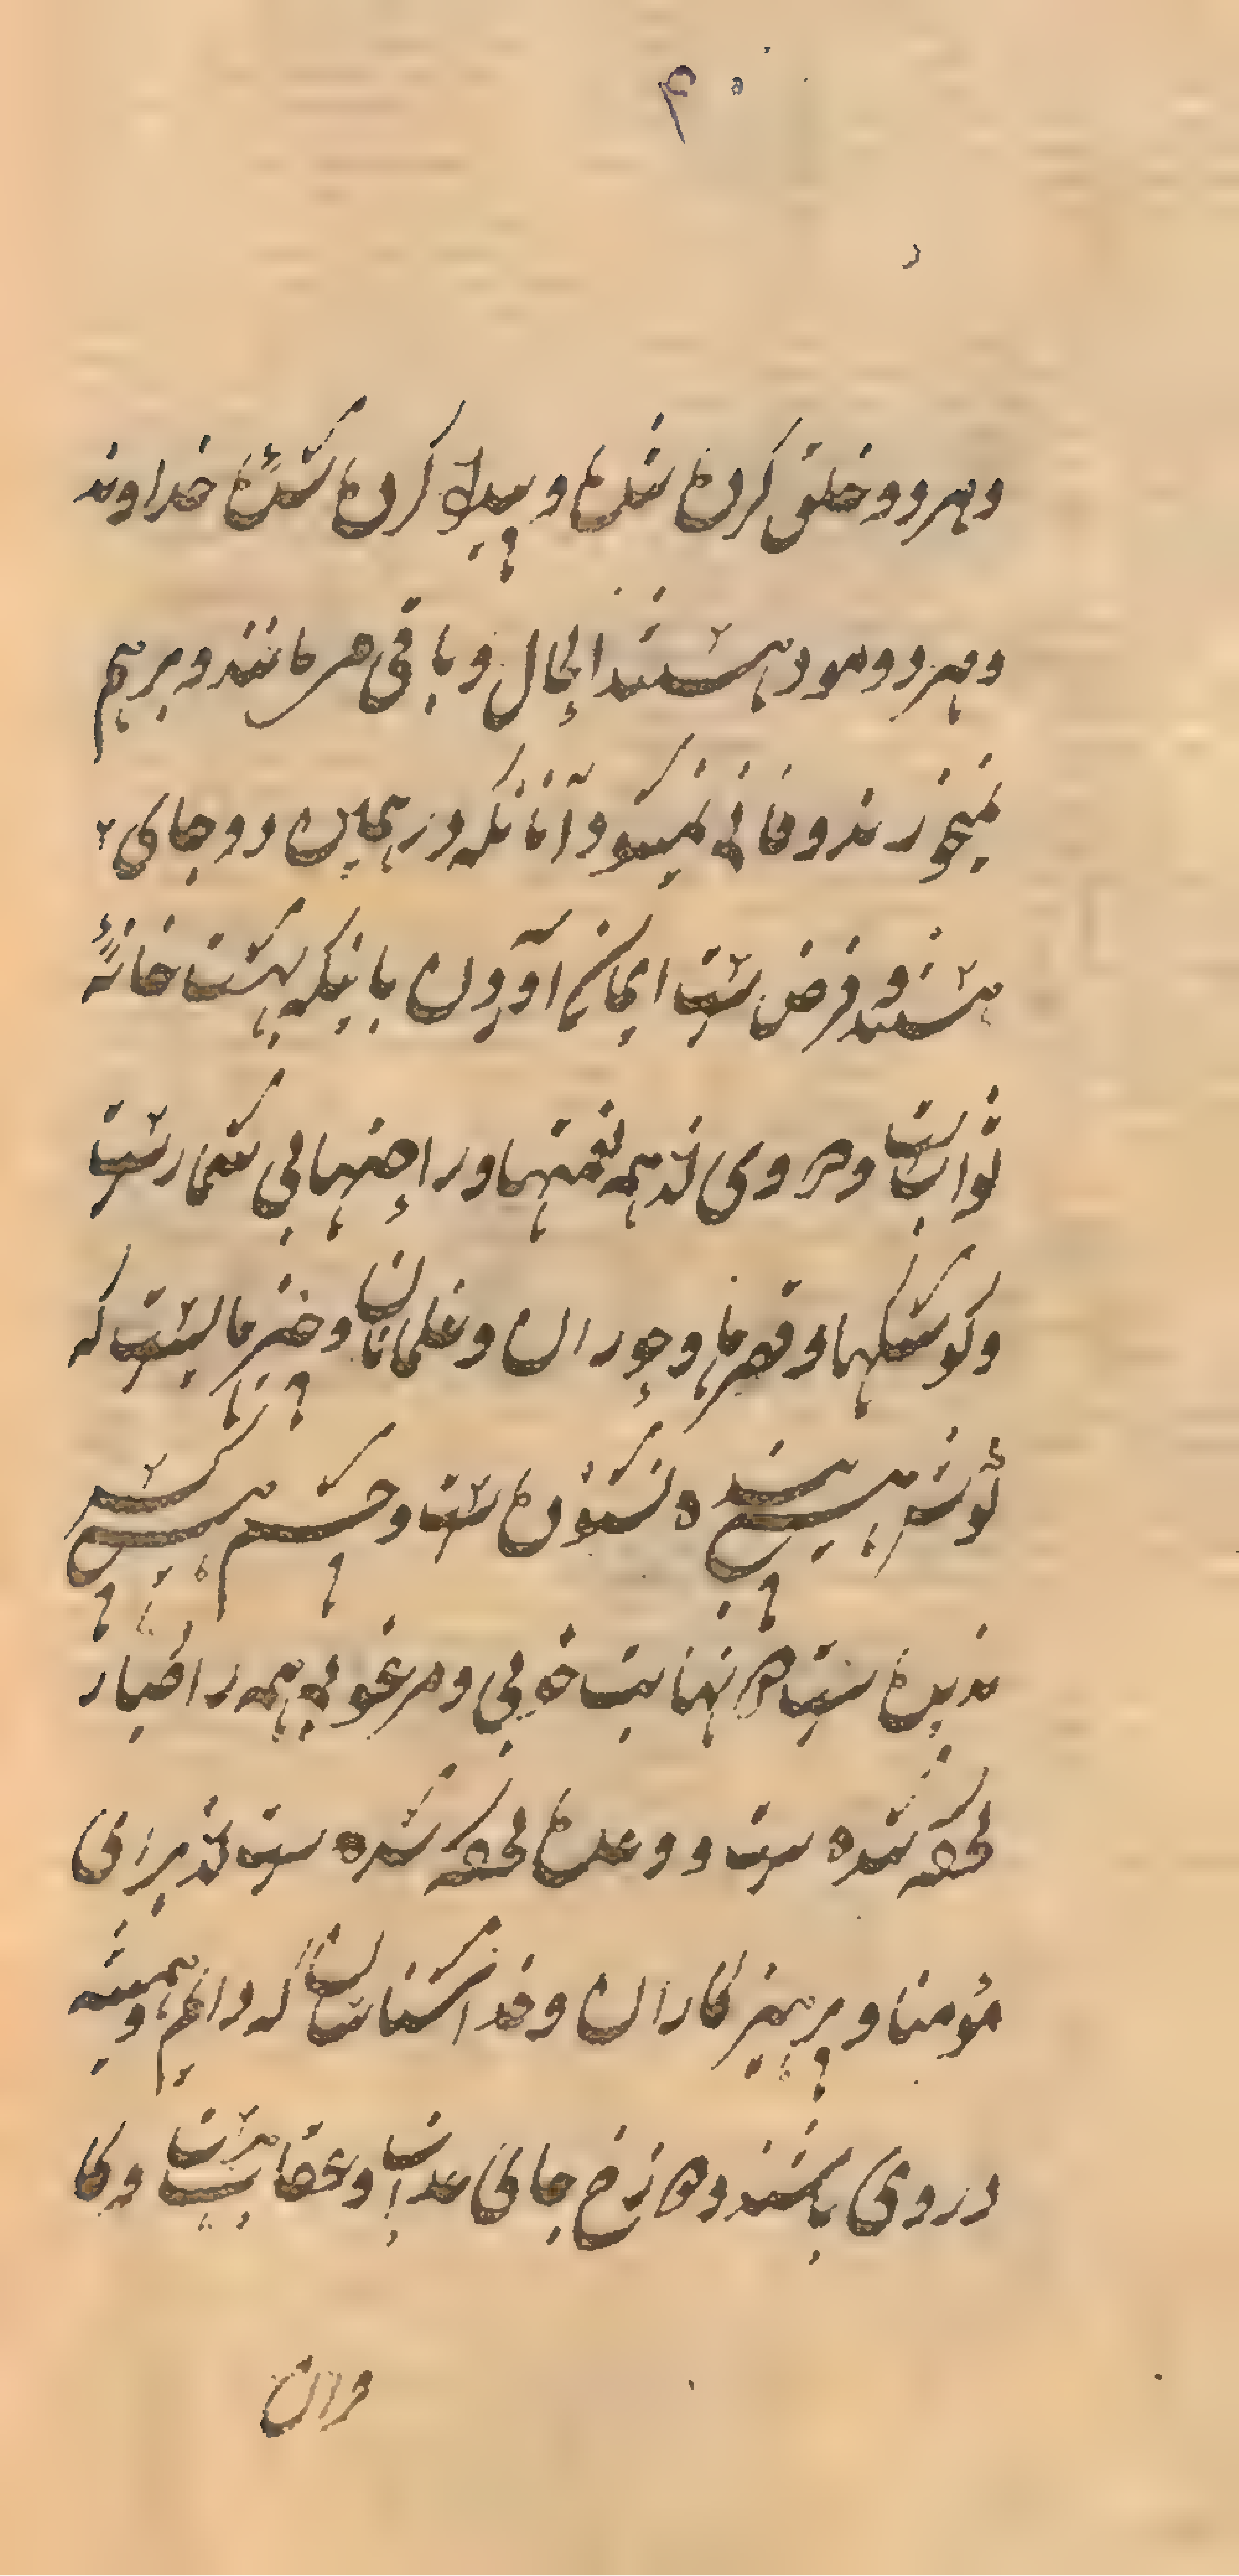 ۴۰
وهردو خلق کرده شده و پیدا کرده شدهٔ خداوند
وهردو موجود هستند الحال و باقی میمانند و برهم
نمیخورند و فانی نمیگردد آنانکه در همین دو جای
هستند و فرض است ایمان آوردن باینکه بهشت خانهٔ
ثوابست و در وی نه همه نعمتها و راحتهای بی شمار است
و کوشکها و قصرها و حوران و غلمانان و چیزهاییست که
گوش هیچ نشنوده است و چشم هیچکس
ندیده است در نهایت خوبی و مرغوبی همه را طیار
کرده شده ست و وعده کرده شده ست برای
مؤمنا و پرهیزکاران و خداشناسان که دایم و همیشه
در وی باشند و دوزخ جای عذاب و عقابست و